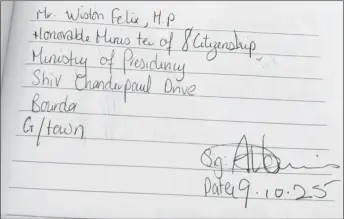 Mr. Wiston Felix, M.P
Honorable Minister of Citizenship,
Ministry of Presidency
Shiv Chanderpaul Drive
Bourda
G/town
Sig:
Date: 9.10.25